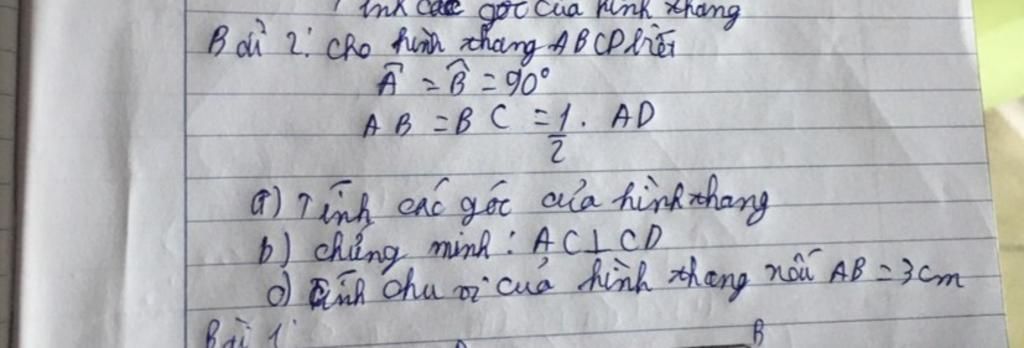 Tính các góc của hình thang
Bài 2: Cho hình thang ABCD biết
Â = B̂ = 90°
AB = BC = 1/2 . AD
a) Tính các góc của hình thang
b) chứng minh: AC ⊥ CD
c) Tính chu vi của hình thang nếu AB = 3cm
Bài 1
B